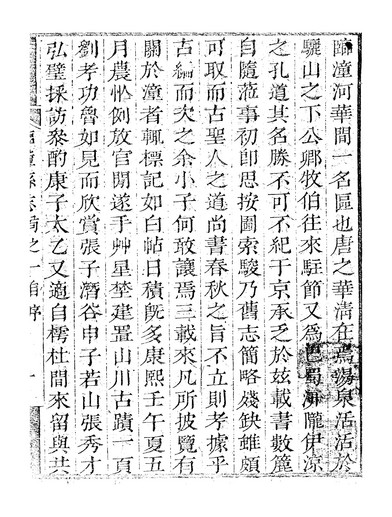 蹄潼河華間一名區也唐之華清在焉湯泉活活於
驪山之下公卿牧伯往來駐節又爲巴蜀汧隴伊涼
之孔道其名勝不可不紀于京承乏於茲載書數簏
自隨蒞事初卽思按圖索駿乃舊志簡略殘缺雖頗
可取而古聖人之道尚書春秋之旨不立則考據乎
古編而次之余小子何敢讓焉三載來凡所披覽有
關於潼者輒標記如白帖日積旣多康熙壬午夏五
月農忙例放官閒遂手艸星埜建置山川古蹟一頁
劉孝功魯如見而欣賞張子潛谷申子若山張秀才
弘璧採訪叅酌康子太乙又適自樗杜間來留與共
臨潼縣志 卷之一自序 一